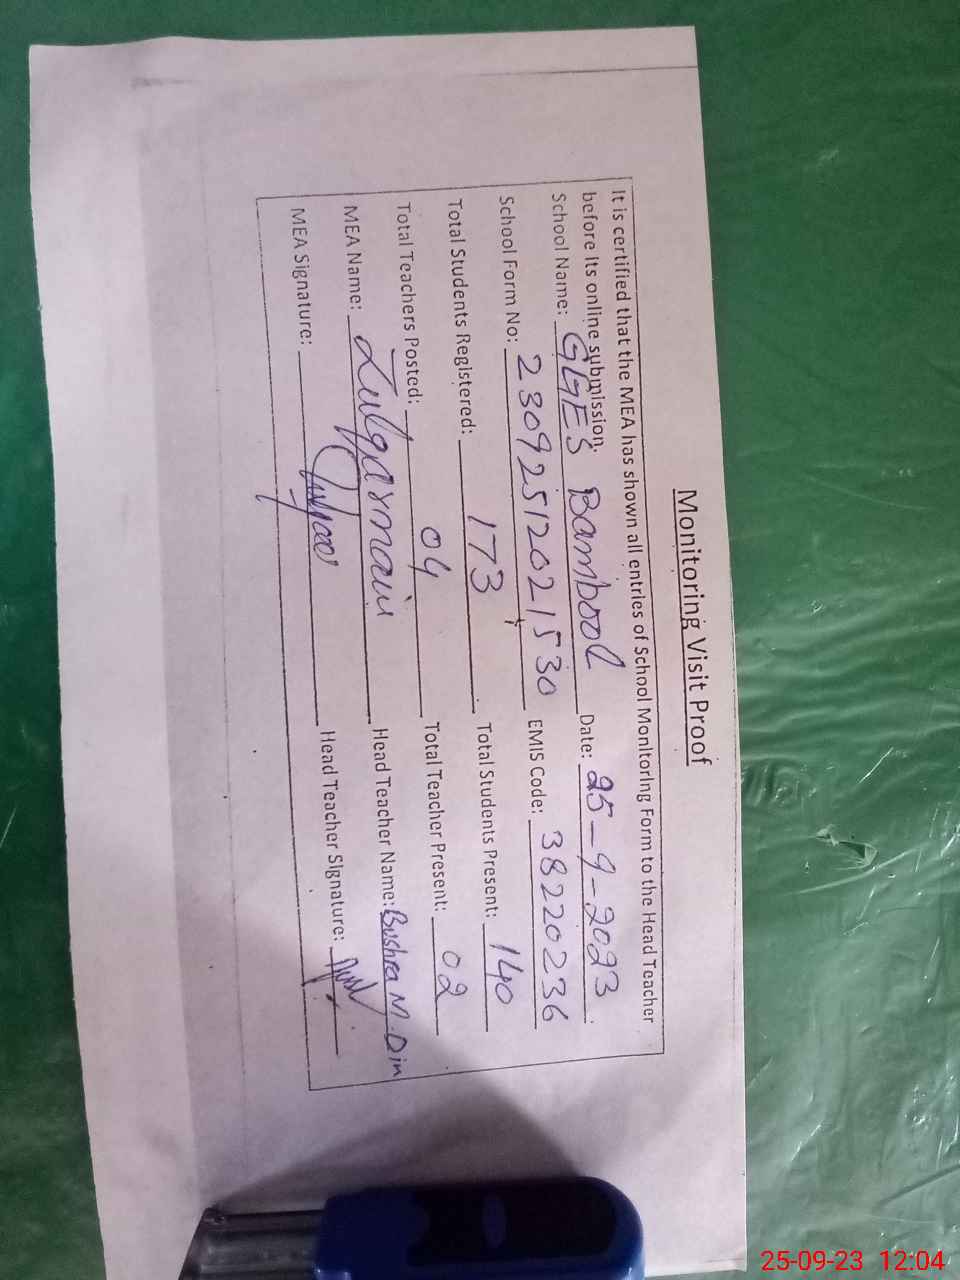 Monitoring Visit Proof
It is certified that the MEA has shown all entries of School Monitoring Form to the Head Teacher
before its online submission.
School Name: GGES Bambool Date: 25-9-2023
School Form No: 23092512021530 EMIS Code: 38220236
Total Students Registered: 173 Total Students Present: 140
Total Teachers Posted: 04 Total Teacher Present: 02
MEA Name: Zulqarnain Head Teacher Name: Bushra M. Din
MEA Signature: Head Teacher Signature:
25-09-23 12:04